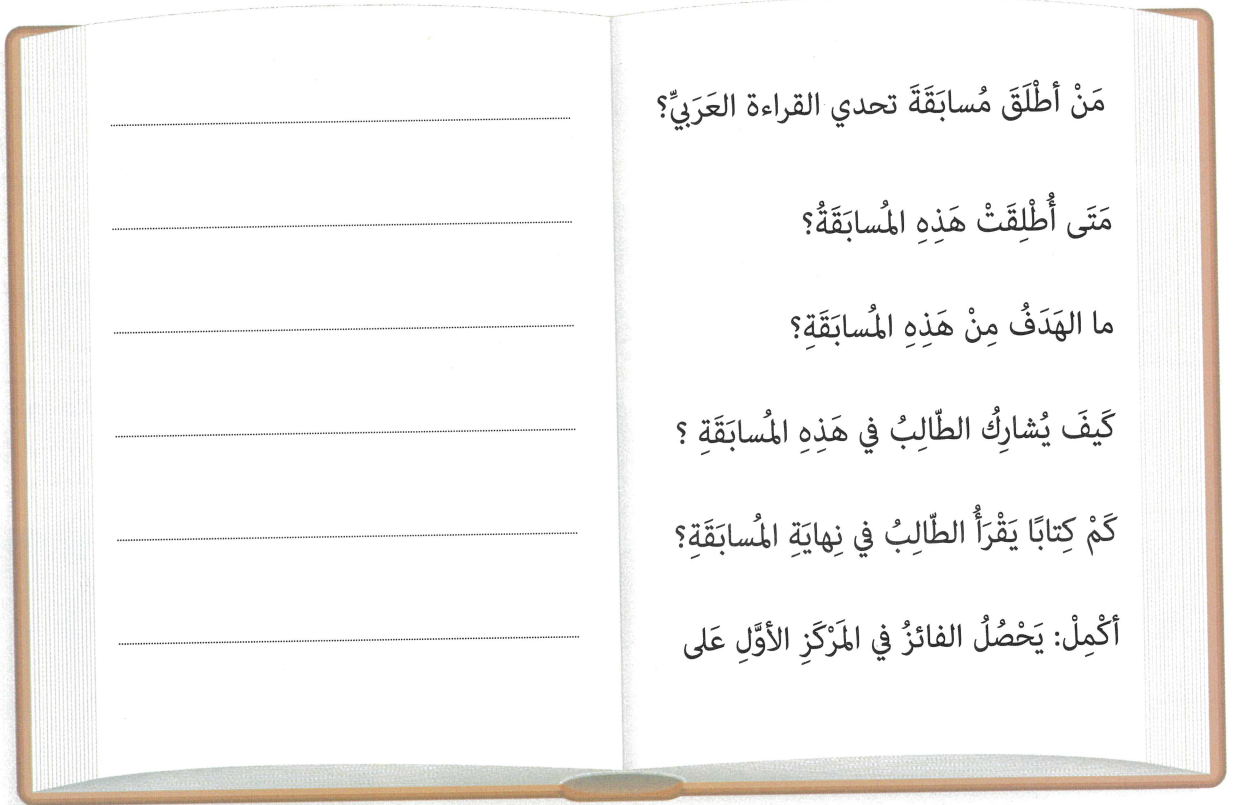 مَنْ أطْلَقَ مُسابَقَةَ تحدي القراءة العَرَبيِّ؟
مَتَى أُطْلِقَتْ هَذِهِ المُسابَقَةُ؟
ما الهَدَفُ مِنْ هَذِهِ المُسابَقَةِ؟
كَيفَ يُشارِكُ الطّالِبُ في هَذِهِ المُسابَقَةِ ؟
كَمْ كِتابًا يَقْرَأُ الطّالِبُ في نِهايَةِ المُسابَقَةِ؟
أكْمِلْ: يَحْصُلُ الفائزُ في المَرْكَزِ الأوَّلِ عَلى